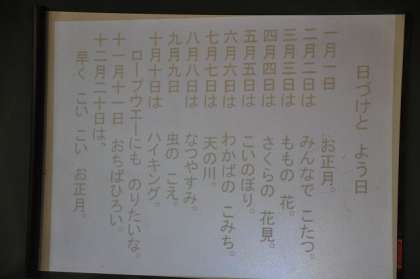 日づけと よう日
一月一日 お正月。
二月二日は みんなで こたつ。
三月三日は ももの 花。
四月四日は さくらの 花見。
五月五日は こいのぼり。
六月六日は わかばの こみち。
七月七日は 天の川。
八月八日は なつやすみ。
九月九日 虫の こえ。
十月十日は ハイキング。
ロープウエーにも のりたいな。
十一月十一日 おちばひろい。
十二月二十日は。
早く こい こい お正月。